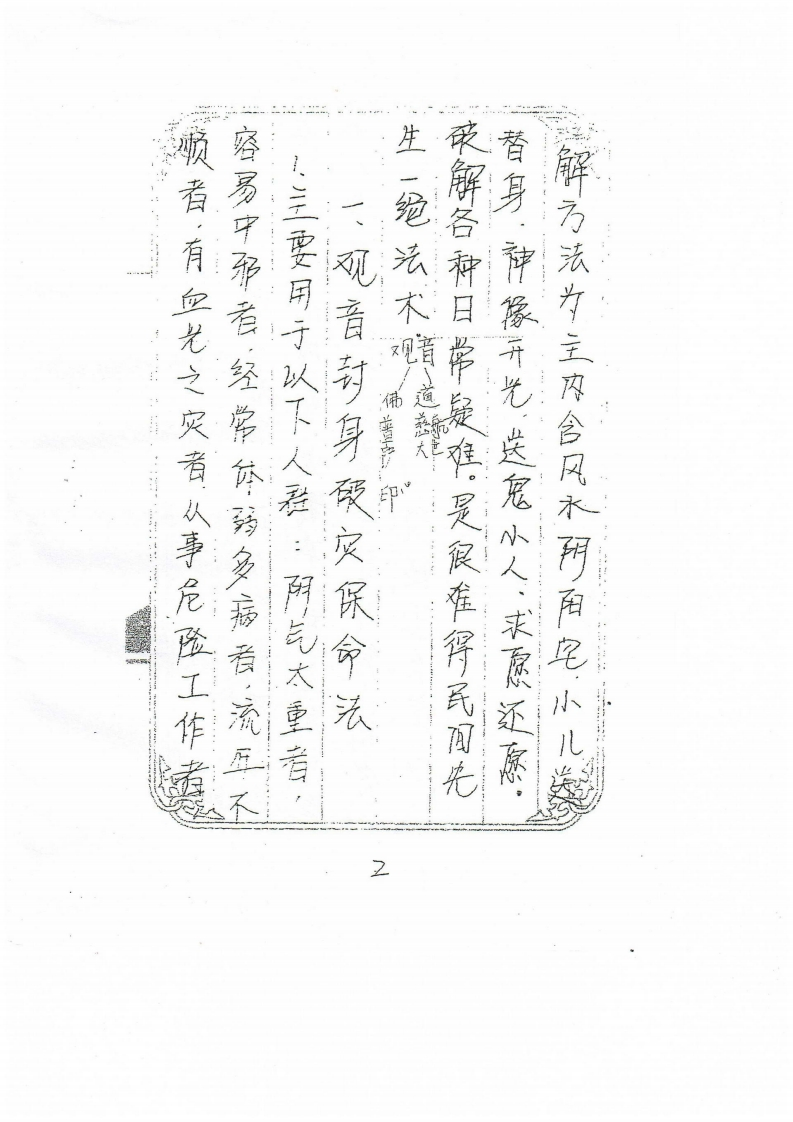 解方法为主内含风水阴阳宅、小儿送
替身、神像开光、送鬼小人、求愿还愿。
破解各种日常疑难。是很难得民间先
生一绝法术。
观音
道 慈航大
佛
印
一、观音封身破灾保命法
1、主要用于以下人群：阴气太重者，
容易中邪者、经常体弱多病者，流年不
顺者，有血光之灾者，从事危险工作者
2